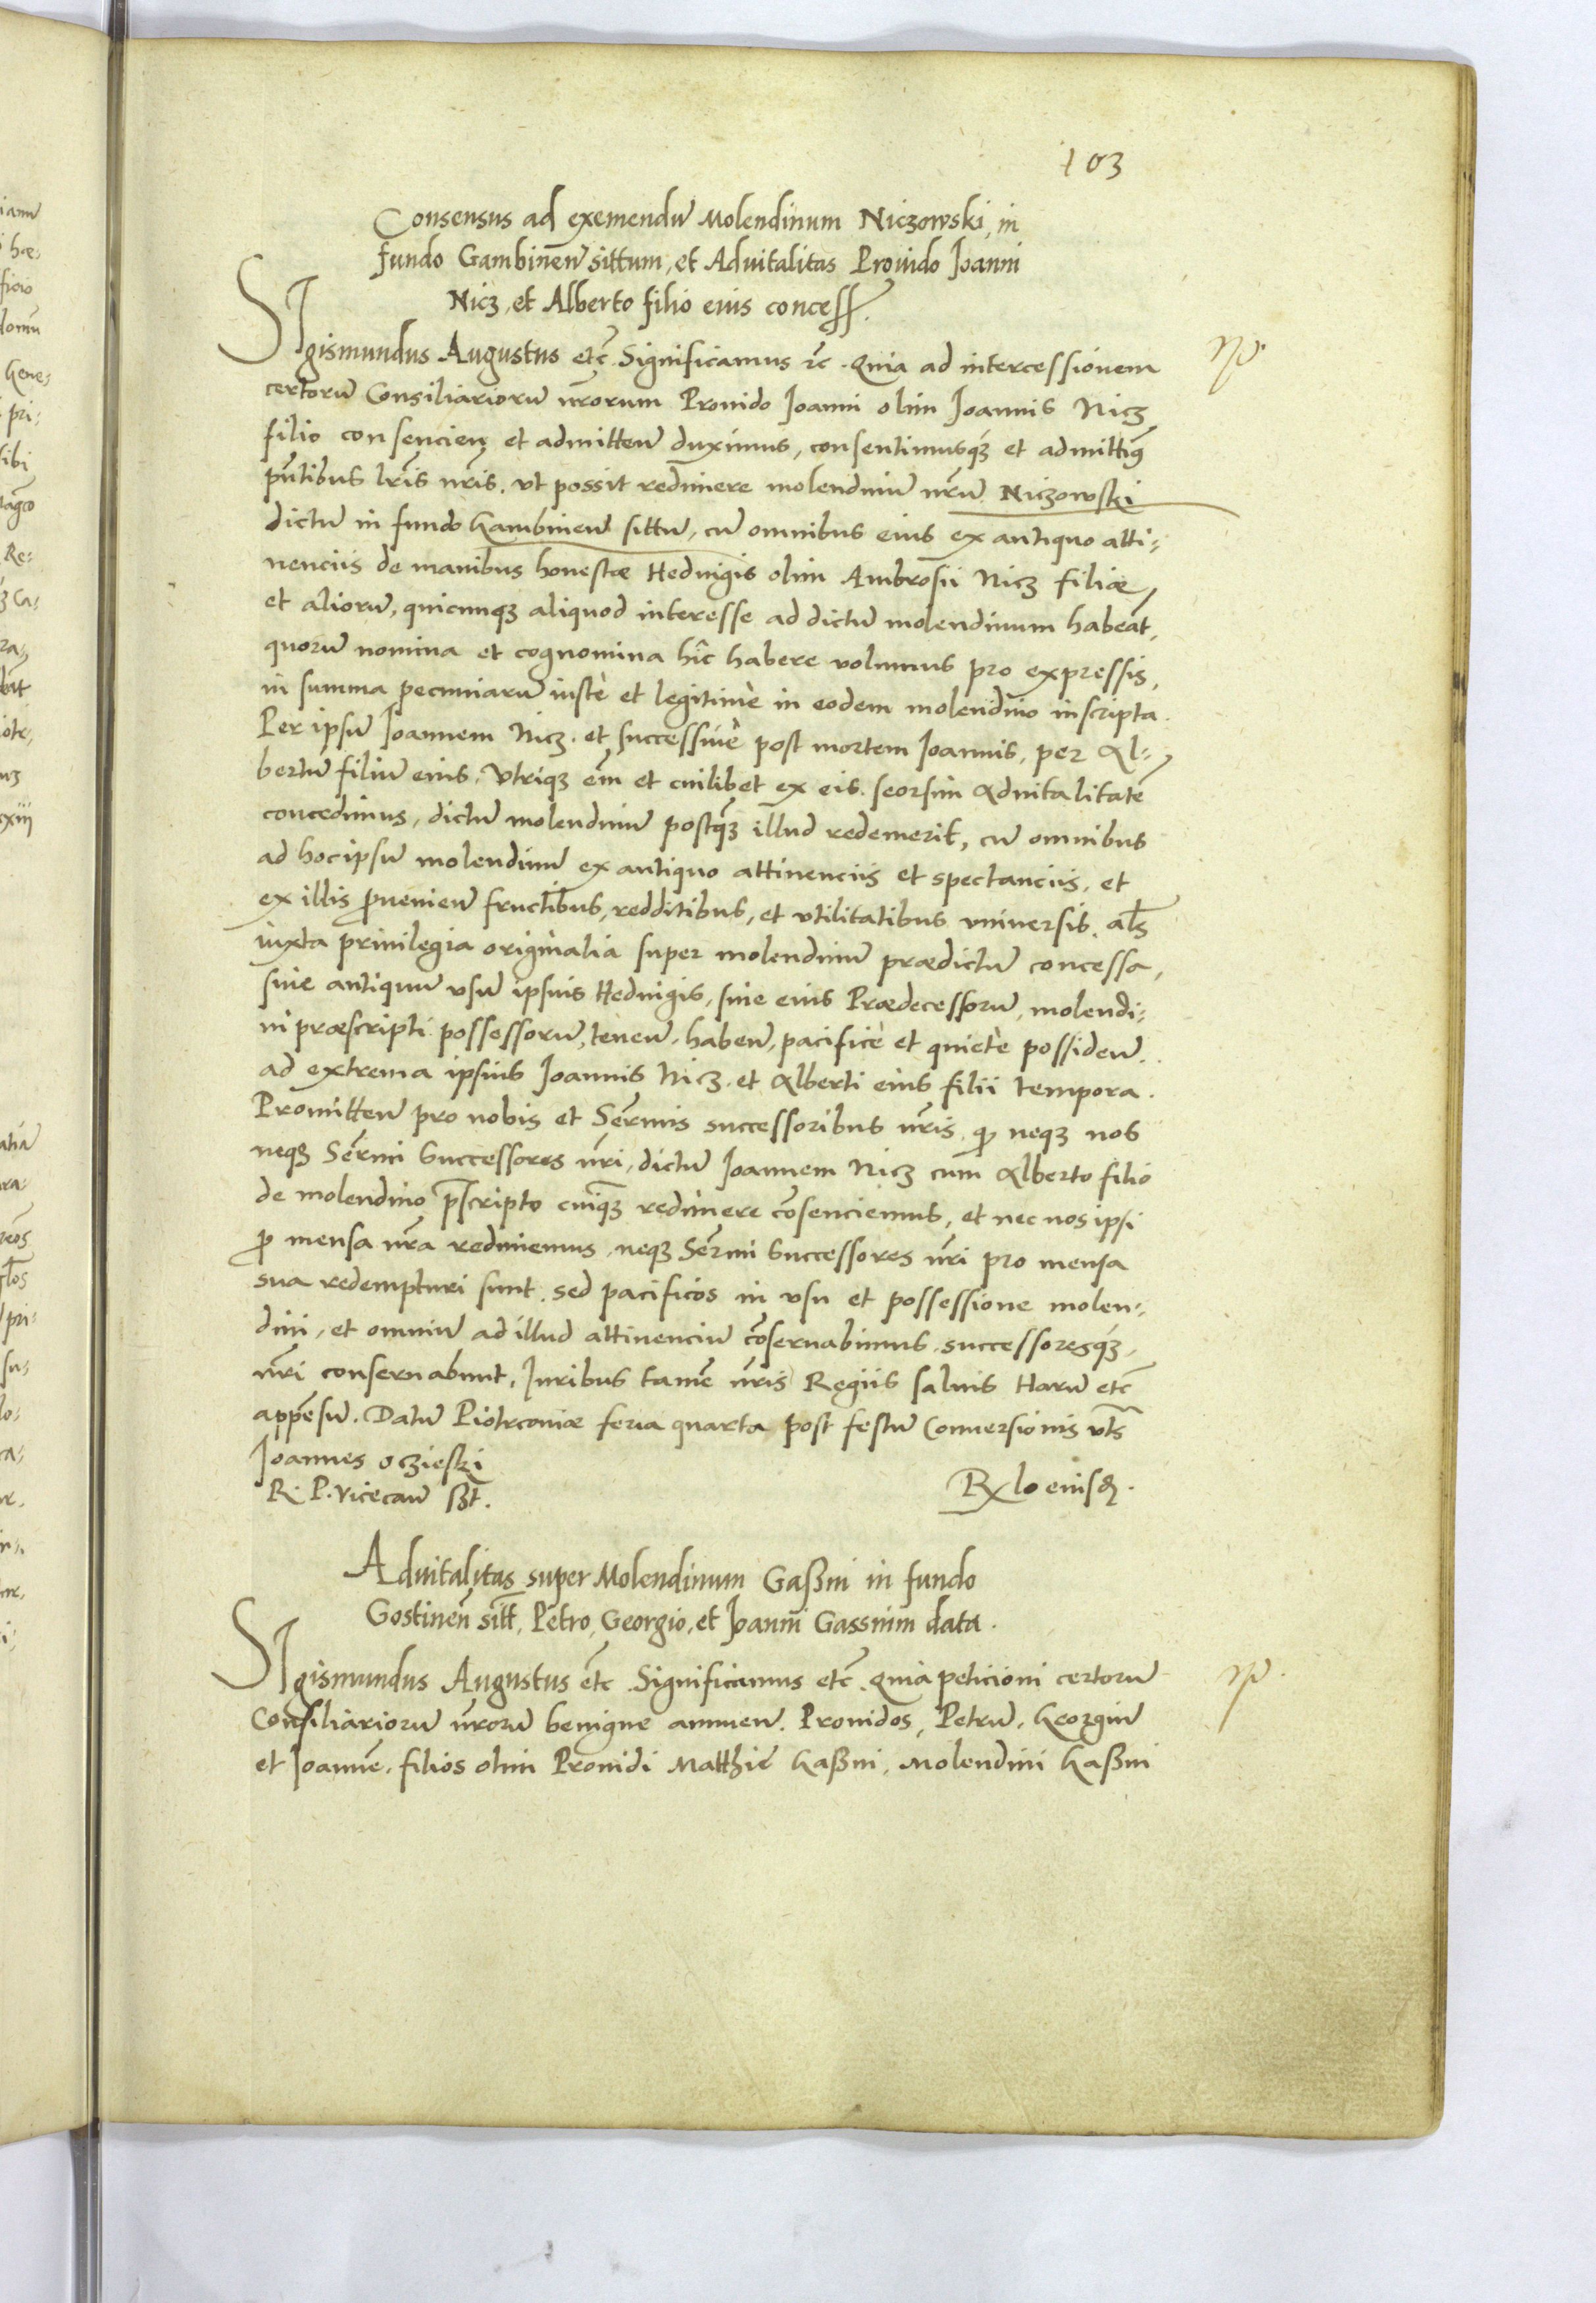 103
Consensus ad exemendū Molendinum Niczowski, in
fundo Gambinen̄ sittum, et Aduitalitas Prouido Joanni
Nicz, et Alberto filio eius concess.
SIgismundus Augustus etc̄ Significamus etc. Quia ad intercessionem
certorū Consiliariorū nr̄orum Prouido Joanni olim Joannis Nicz
filio consencien̄ et admitten̄ duximus, consentimusq́ꝫ et admittiꝰ
pn̄tibus lr̄is nr̄is, vt possit redimere molendinū nr̄ū Niczowski
dictū in fundo Gambinen̄ sittū, cū omnibus eius ex antiquo atti-
nenciis de manibus honestæ Heduigis olim Ambrosii Nicz filiæ,
et aliorū, quicunqꝫ aliquod interesse ad dictū molendinum habeāt,
quorū nomina et cognomina hîc habere volumus pro expressis,
in summa pecuniarū iustè et legitimè in eodem molendino inscripta.
Per ipsū Joannem Nicz. et successiuè post mortem Joannis, per Al-
bertū filiū eius. Vtriqꝫ em̄ et cuilibet ex eis. seorsim Aduitalitatē
concedimus, dictū molendinū postq̄ꝫ illud redemerit, cū omnibus
ad hoc ipsū molendinū ex antiquo attinenciis et spectanciis, et
ex illis ꝓuenien̄ fructibus, redditibus, et vtilitatibus vniuersis. al̄s
iuxta priuilegia originalia super molendinū prædictū concessa,
siue antiquū vsū ipsius Heduigis, siue eius Prædecessorū, molendi-
ni præscripti possessorū, tenen̄. haben̄, pacificè et quietè possiden̄.
ad extrema ipsius Joannis Nicz. et Alberti eius filii tempora.
Promitten̄ pro nobis et Ser̄mis successoribus nr̄is, qꝫ neqꝫ nos
neqꝫ Ser̄mi Successores nr̄i, dictū Joannem Nicz cum Alberto filio
de molendino p̄scripto cuiq̄ꝫ redimere cōsenciemus, et nec nos ipsi
ꝓ mensa nr̄a redimemus, neqꝫ Ser̄mi Successores nr̄i pro mensa
sua redempturi sunt. sed pacificos in vsu et possessione molen-
dini, et omniū ad illud attinenciū cōseruabimus, successoresq́ꝫ
nr̄i conseruabunt, Iuribus tamē nr̄is Regiis saluis Harū etc̄
appēsū. Datū Piotrcouiæ feria quarta post festū Conuersionis vts̄
Joannes Oczieski
R. P. Vicecan̄ sst.
Rx̄lo eiusd.
Aduitalitas super Molendinum Gaßni in fundo
Gostinen̄ sitt̄, Petro, Georgio, et Joanni Gassnim data.
SIgismundus Augustus etc̄ Significamus etc̄. Quia peticioni certorū
Consiliariorū nr̄orū benigne annuen̄. Prouidos, Petrū, Georgiū
et Joannē, filios olim Prouidi Matthię Gaßni, Molendini Gaßni